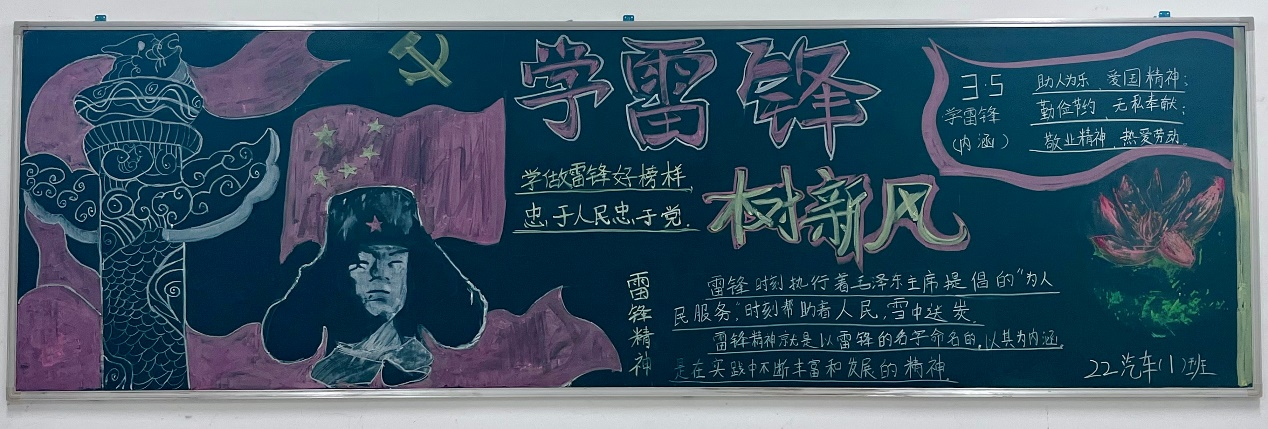 学雷锋
树新风
学做雷锋好榜样
忠于人民忠于党.
3.5
学雷锋
(内涵)
助人为乐、爱国精神;
勤俭节约、无私奉献;
敬业精神、热爱劳动.
雷锋精神
雷锋时刻执行着毛泽东主席提倡的“为人
民服务”,时刻帮助着人民,雪中送炭.
雷锋精神就是以雷锋的名字命名的,以其为内涵,
是在实践中不断丰富和发展的精神.
22汽车(1)班